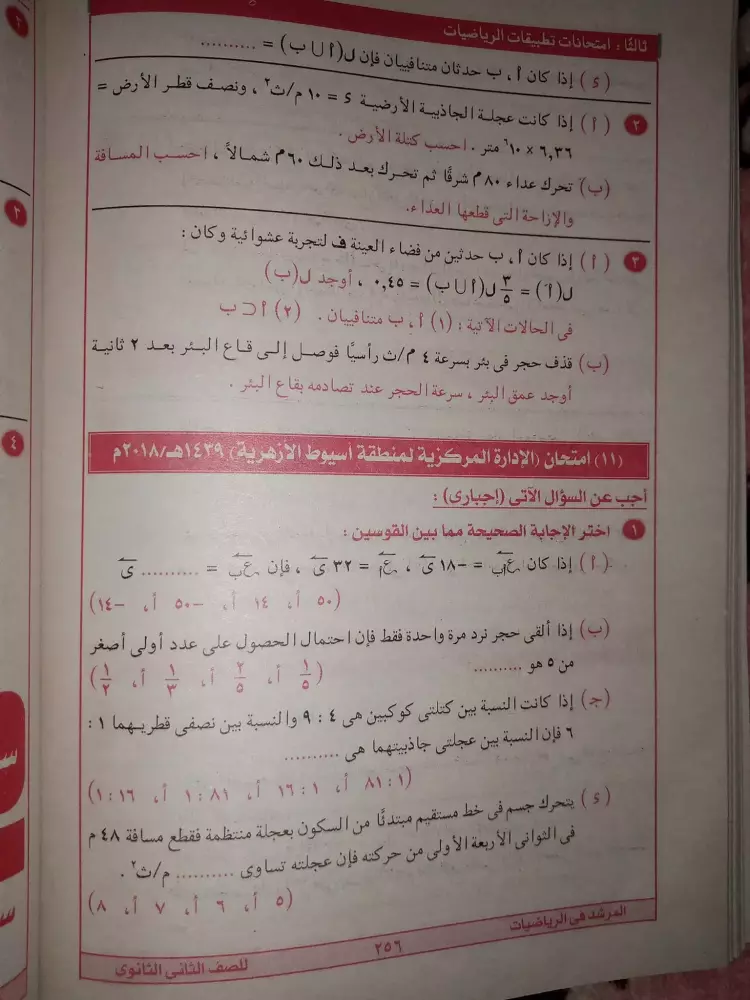 ثالثًا: امتحانات تطبيقات الرياضيات
(د) إذا كان أ، ب حدثان متنافييان فإن ل(أ ∪ ب) = ..........
٢ (أ) إذا كانت عجلة الجاذبية الأرضية د = ١٠ م/ث٢، ونصف قطر الأرض =
٦,٣٦ × ١٠٦ متر. احسب كتلة الأرض.
(ب) تحرك عداء ٨٠ م شرقًا ثم تحرك بعد ذلك ٦٠ م شمالاً، احسب المسافة
والإزاحة التى قطعها العداء.
٣ (أ) إذا كان أ، ب حدثين من فضاء العينة ف لتجربة عشوائية وكان:
ل(أ) = ٣/٥ ل(أ ∪ ب) = ٠,٤٥، أوجد ل(ب)
فى الحالات الآتية: (١) أ، ب متنافييان. (٢) أ ⊂ ب
(ب) قذف حجر فى بئر بسرعة ٤ م/ث رأسيًا فوصل إلى قاع البئر بعد ٢ ثانية
أوجد عمق البئر، سرعة الحجر عند تصادمه بقاع البئر.
(١١) امتحان (الإدارة المركزية لمنطقة أسيوط الأزهرية) ١٤٣٩هـ/٢٠١٨م
أجب عن السؤال الآتى (إجبارى):
١ اختر الإجابة الصحيحة مما بين القوسين:
(أ) إذا كان ع أب = −١٨ ى، ع أ = ٣٢ ى، فإن ع ب = .......... ى
(٥٠ أ، ١٤ أ، −٥٠ أ، −١٤)
(ب) إذا ألقى حجر نرد مرة واحدة فقط فإن احتمال الحصول على عدد أولى أصغر
من ٥ هو .......... (١/٥ أ، ٢/٥ أ، ١/٣ أ، ١/٢)
(جـ) إذا كانت النسبة بين كتلتى كوكبين هى ٤ : ٩ والنسبة بين نصفى قطريهما ١ :
٦ فإن النسبة بين عجلتى جاذبيتهما هى ..........
(٨١:١ أ، ١٦:١ أ، ١:٨١ أ، ١:١٦)
(د) يتحرك جسم فى خط مستقيم مبتدئًا من السكون بعجلة منتظمة فقطع مسافة ٤٨ م
فى الثوانى الأربعة الأولى من حركته فإن عجلته تساوى .......... م/ث٢.
(٥ أ، ٦ أ، ٧ أ، ٨)
المرشد فى الرياضيات
٢٥٦
للصف الثانى الثانوى
٢
٢
٤